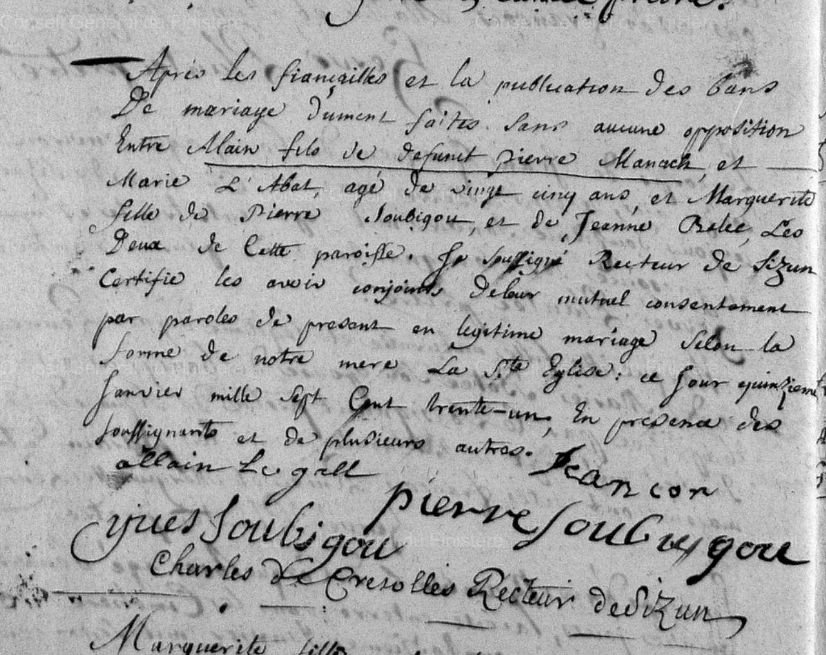 Conseil Général du Finistère
prestre.
Après les fiançailles et la publication des bans
De mariage dument faites sans aucune opposition
Entre Alain fils de defunct pierre Manach, et
Marie L'Abat, agé de vingt cinq ans, et Marguerite
fille de Pierre Soubigou, et de Jeanne Les
Deux de Cette paroisse. Je soussigné Recteur de Sizun
Certifie les avoir conjoints de leur mutuel consentement
par paroles de present en legitime mariage selon la
forme de notre mere La Ste Eglise: ce jour quinzieme
Janvier mille sept Cent trente-un, En presence des
soussignants et de plusieurs autres.
allain Le gall Jean cor
pierre Soubigou
yves Soubigou
Charles de Cresolles Recteur de Sizun
Marguerite fille